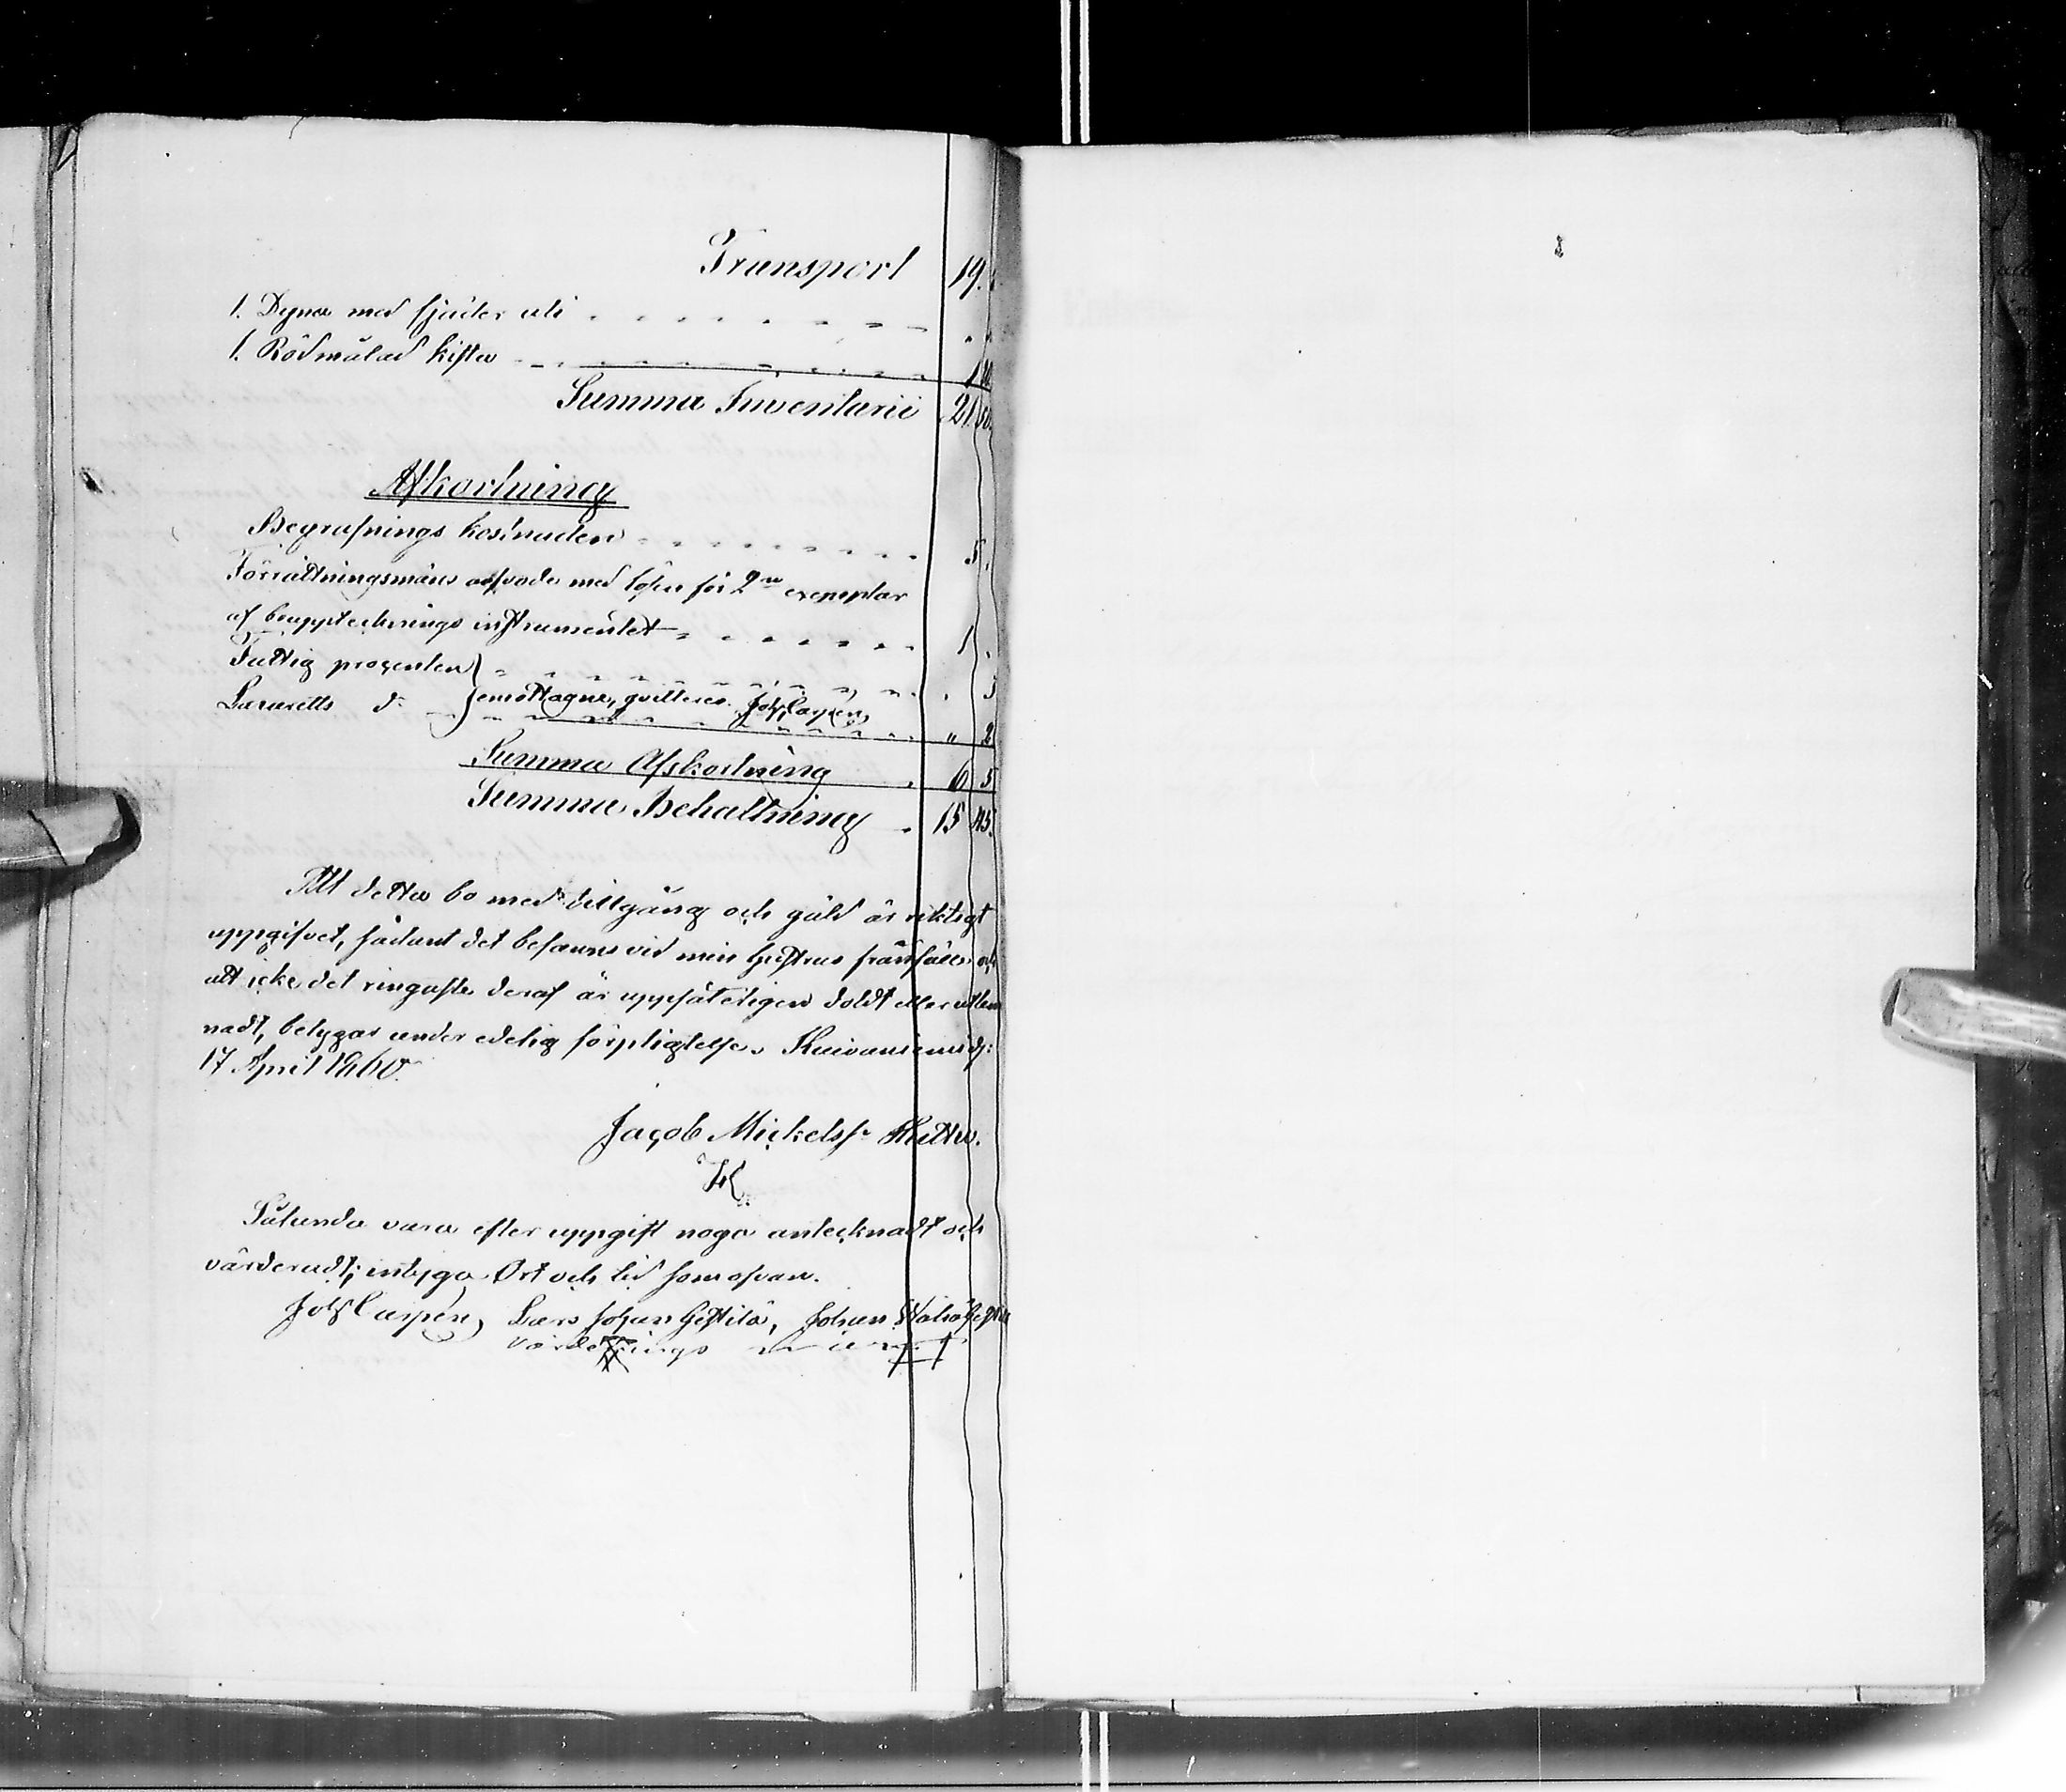 Transport 19.
1. Dyna med fjäder uti
1. Rödmålad kista 1
Summa Inventarii 21 50.
Afkortning
Begrafnings kostnaden 5.
Förrättningsmäns arfvode med lösen för 2ne exemplar
af bouppteknings instrumentet 1.
Fattig procenten 3
Lazaretts do emottagne, qvitteras. Joh Carpén 2
Summa Afkortning 6 5
Summa Behållning 15 45.
Att detta bo med tillgång och gäld är riktigt
uppgifvet, sådant det befanns vid min hustrus frånfälle och
att icke det ringaste deraf är uppsåteligen doldt eller utlem
nadt, betygar under edelig förpligtelse.
17 April 1860.
Jacob Mickelss.
Sålunda vara efter uppgift noga antecknadt och
värderadt; intyga Ort och tid som ofvan.
Joh Carpén, Lars Johan Johan
Värderings män